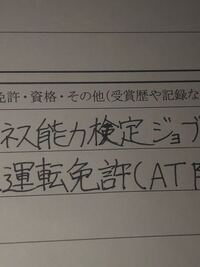 免許・資格・その他(受賞歴や記録な
ネス能力検定ジョブ
運転免許(AT